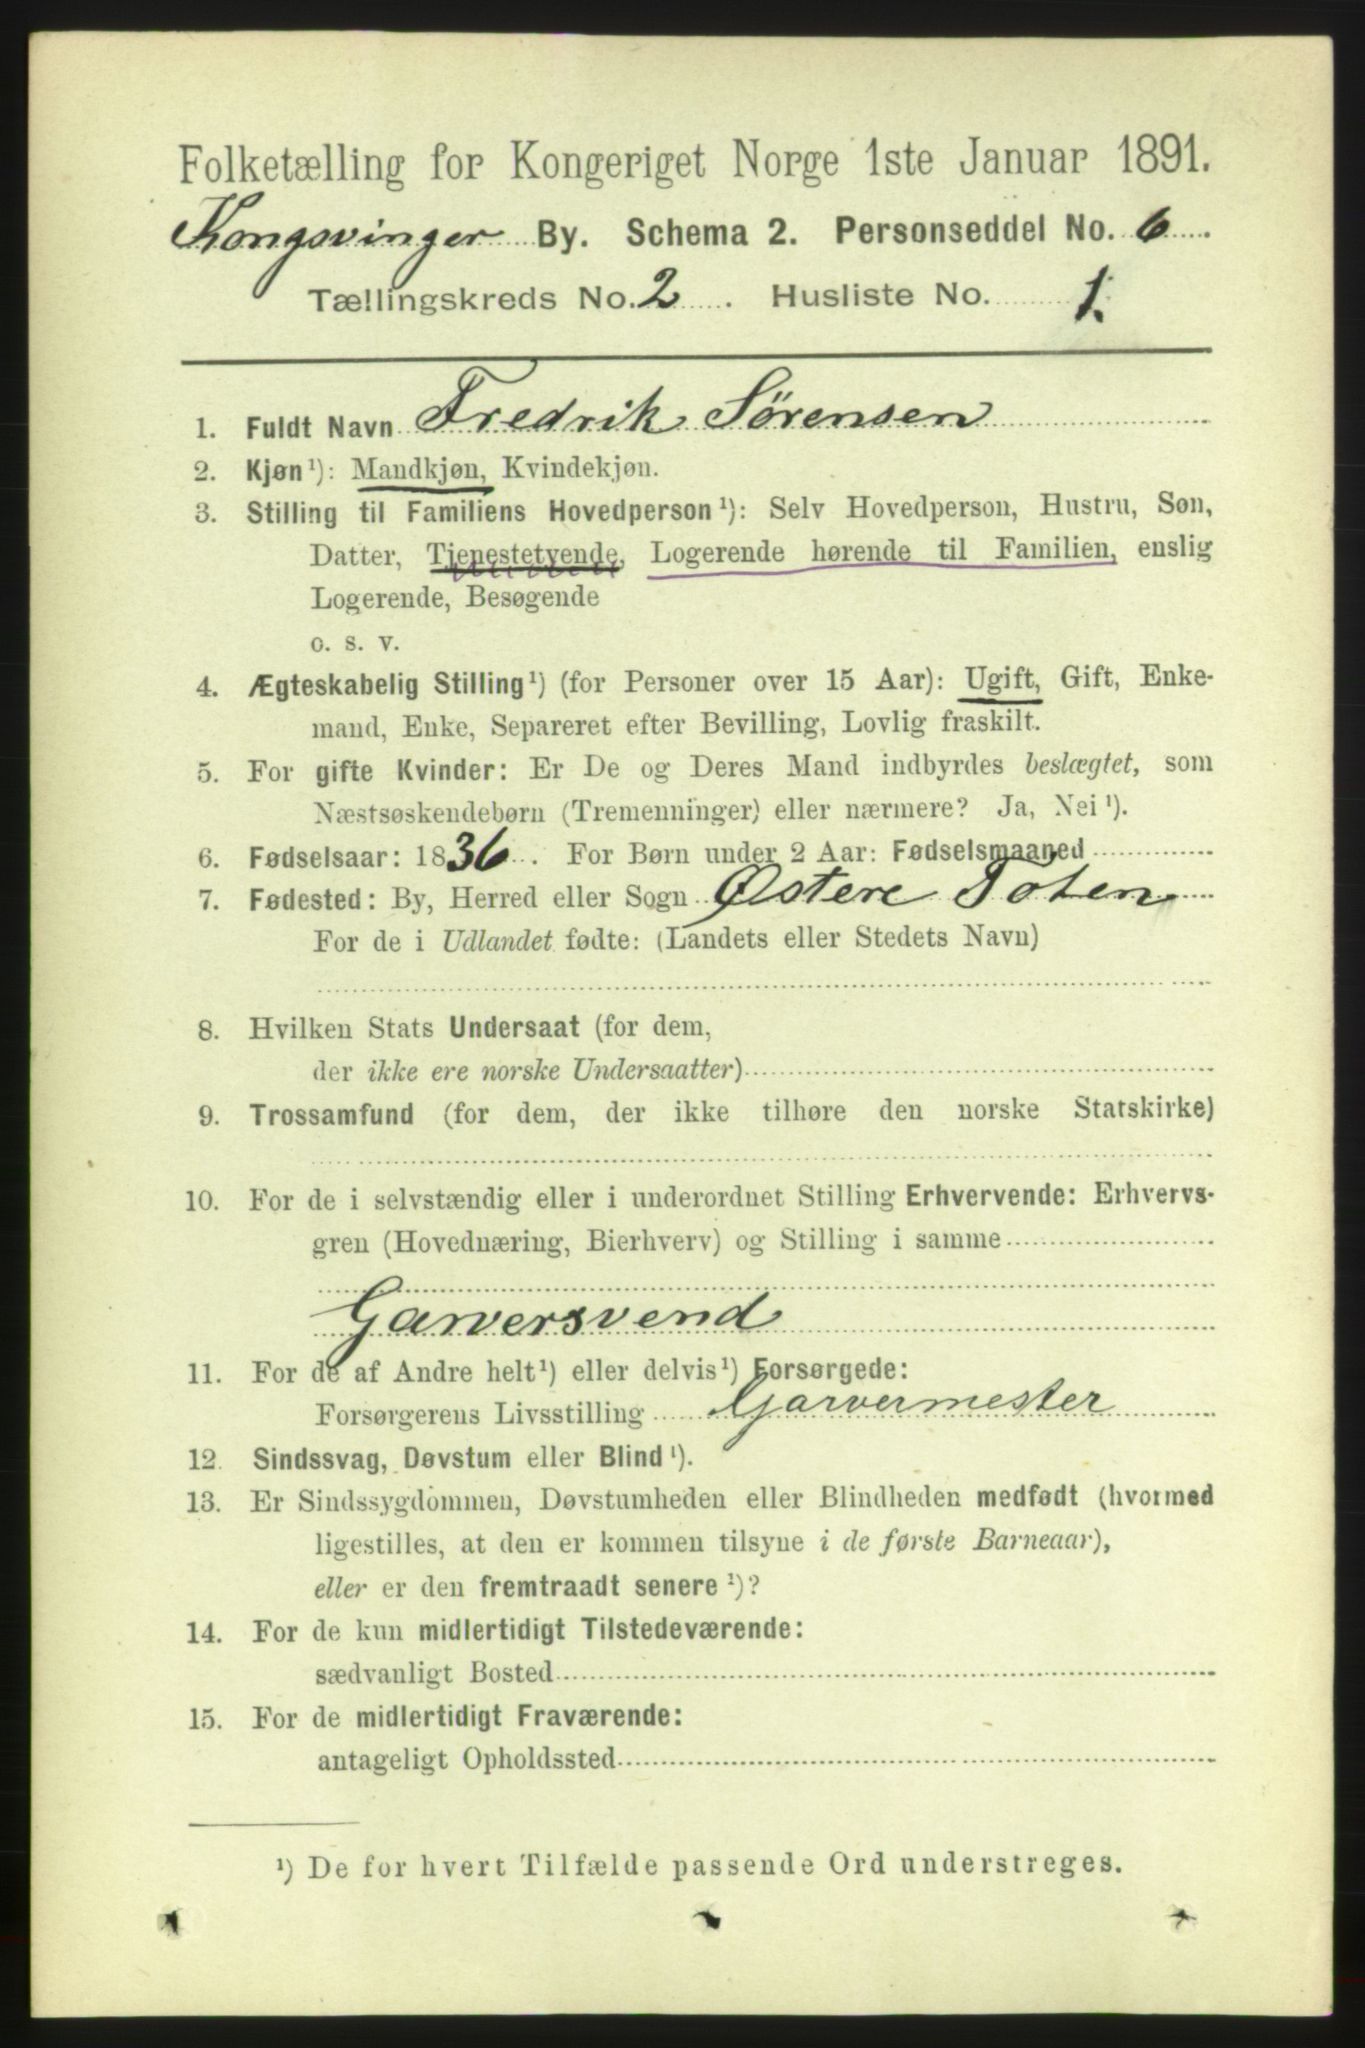 Folketælling for Kongeriget Norge 1ste Januar 1891.
Kongsvinger By. Schema 2. Personseddel No. 6
Tællingskreds No. 2. Husliste No. 1.
1. Fuldt Navn Fredrik Sørensen
2. Kjøn¹): Mandkjøn, Kvindekjøn.
3. Stilling til Familiens Hovedperson¹): Selv Hovedperson, Hustru, Søn,
Datter, Tjenestetyende, Logerende hørende til Familien, enslig
Logerende, Besøgende
o. s. v.
4. Ægteskabelig Stilling¹) (for Personer over 15 Aar): Ugift, Gift, Enke-
mand, Enke, Separeret efter Bevilling, Lovlig fraskilt.
5. For gifte Kvinder: Er De og Deres Mand indbyrdes beslægtet, som
Næstsøskendebørn (Tremenninger) eller nærmere? Ja, Nei¹).
6. Fødselsaar: 1836. For Børn under 2 Aar: Fødselsmaaned
7. Fødested: By, Herred eller Sogn Østere Toten
For de i Udlandet fødte: (Landets eller Stedets Navn)
8. Hvilken Stats Undersaat (for dem,
der ikke ere norske Undersaatter)
9. Trossamfund (for dem, der ikke tilhøre den norske Statskirke)
10. For de i selvstændig eller i underordnet Stilling Erhvervende: Erhvervs-
gren (Hovednæring, Bierhverv) og Stilling i samme
Garversvend
11. For de af Andre helt¹) eller delvis¹) Forsørgede:
Forsørgerens Livsstilling Garvermester
12. Sindssvag, Døvstum eller Blind¹).
13. Er Sindssygdommen, Døvstumheden eller Blindheden medfødt (hvormed
ligestilles, at den er kommen tilsyne i de første Barneaar),
eller er den fremtraadt senere¹)?
14. For de kun midlertidigt Tilstedeværende:
sædvanligt Bosted
15. For de midlertidigt Fraværende:
antageligt Opholdssted
¹) De for hvert Tilfælde passende Ord understreges.